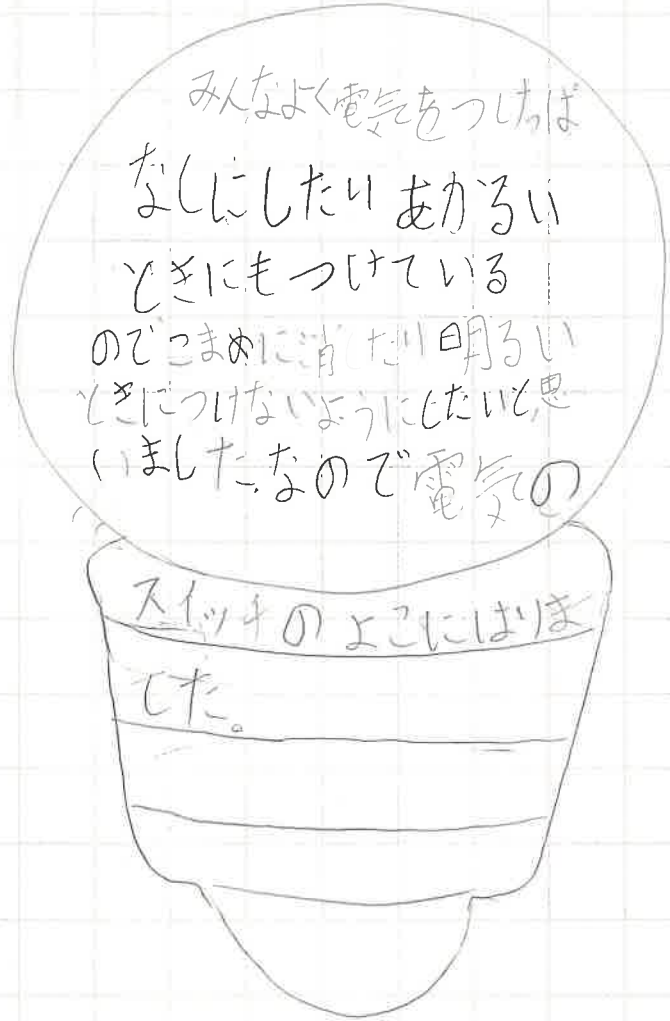 みんなよく電気をつけっぱ
なしにしたりあかるい
ときにもつけている
のでこまめに消したり明るい
ときにつけないようにしたいと思
いました。なので電気の
スイッチのよこにはりま
した。